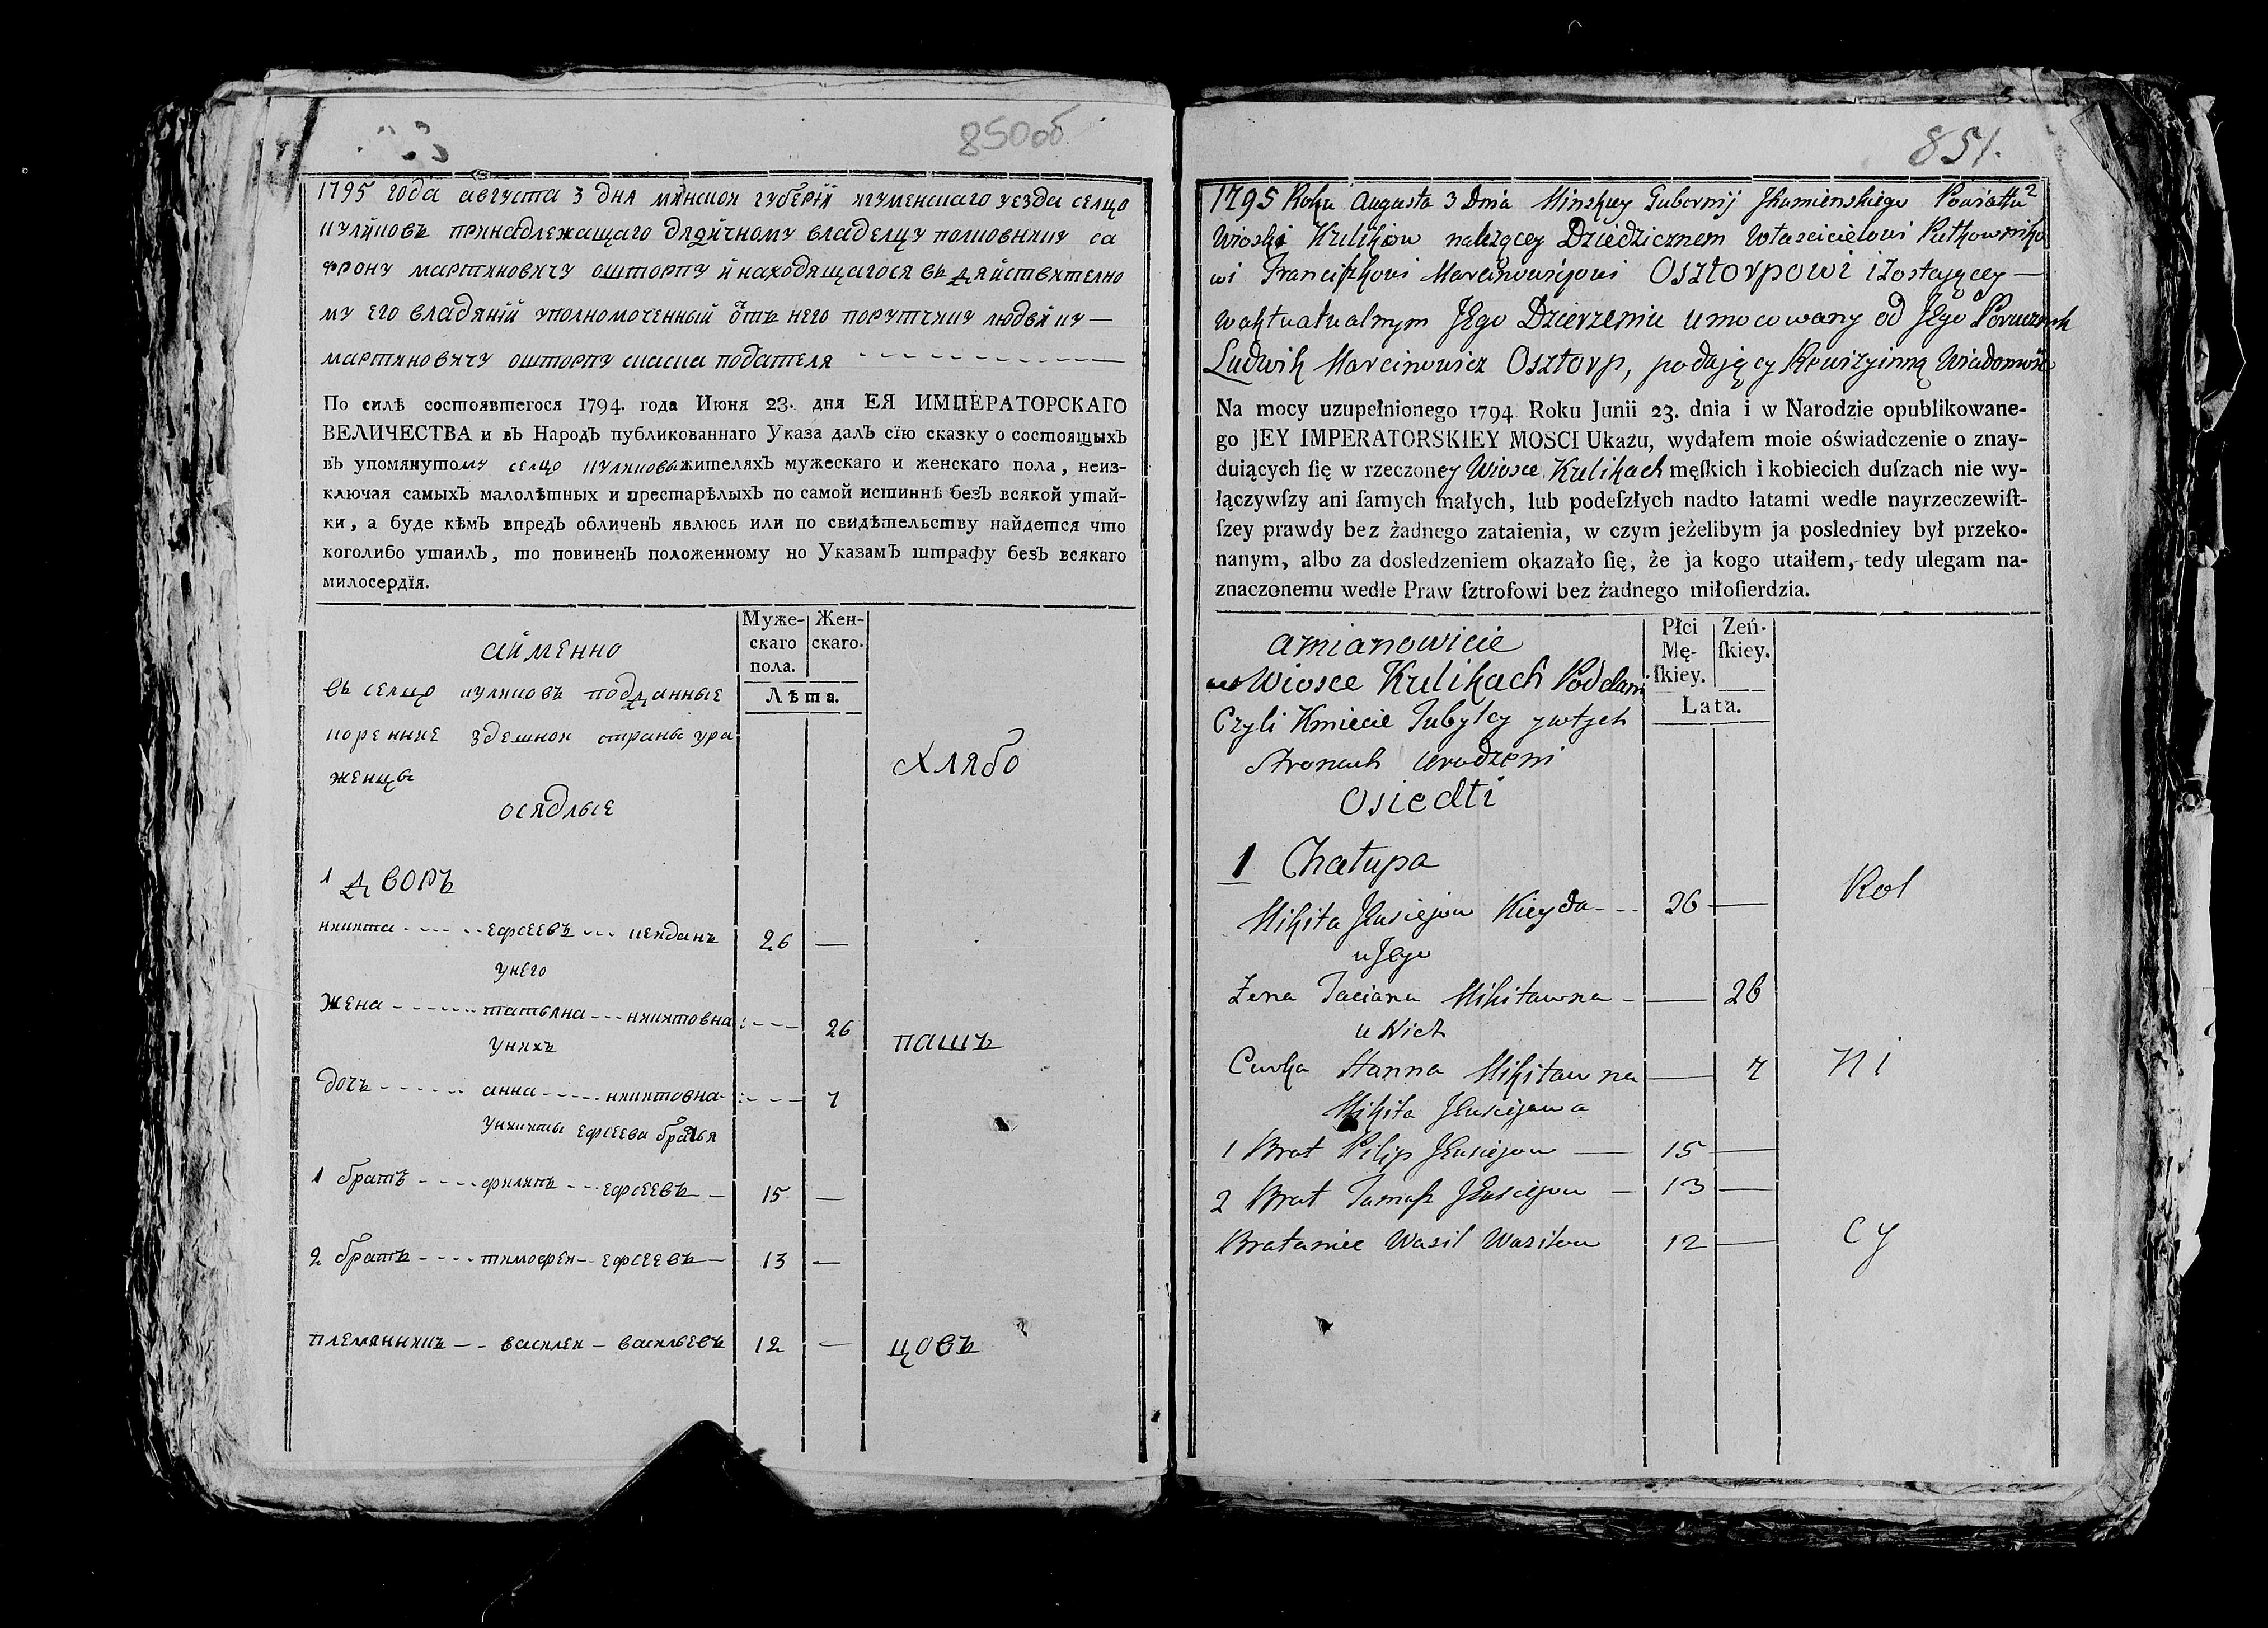 850об.
1795 года августа 3 дня минской губерніи игуменскаго уезда селцо
куликовъ принадлежащаго дидичному владелцу полковнику са
фрону мартиновичу ошторпу и находящагося въ дийствително
му его владяній уполномоченный отъ него порутчику людвику —
мартиновичу ошторпу списка подателя
По силѣ состоявшегося 1794. года Июня 23. дня ЕЯ ИМПЕРАТОРСКАГО
ВЕЛИЧЕСТВА и въ Народъ публикованнаго Указа далъ сїю сказку о состоящыхъ
въ упомянутому селцо куликовы жителяхъ мужескаго и женскаго пола, неиз-
ключая самыхъ малолѣтныхъ и престарѣлыхъ по самой истиннѣ безъ всякой утай-
ки, а буде кѣмъ впредъ обличенъ явлюсь или по свидѣтельству найдется что
коголибо утаилъ, то повиненъ положенному по Указамъ штрафу безъ всякаго
милосердїя.
Муже-
скаго
пола.
Жен-
скаго.
Лѣта.
аименно
въ селцо куликовъ подданные
коренние здешной страны ура
женцы
осядлые
хлябо
1 дворъ
никита ефсеевъ кейданъ 26 —
унего
жена татьяна никитовна — 26
унихъ
пашъ
дочъ анна никитовна — 7
уникиты ефсеева братья
1 братъ филипъ ефсеевъ 15 —
2 братъ тимофей ефсеевъ 13 —
племянникъ василей васильевъ 12 —
цовъ
851.
1795 Roku Augusta 3 Dnia Minskiey Gubernij Jhumienskiego Powiattu
Wioski Kulikow należącey Dziedzicznem Włascicielowi Pułkowniko
wi Franciszkowi Marcinowiczowi Osztorpowi i zostającey —
w aktualnym Jego Dzierzeniu umocowany od Jego Porucznik
Ludwik Marcinowicz Osztorp, podający Rewizyinną Wiadomość
Na mocy uzupełnionego 1794 Roku Junii 23. dnia i w Narodzie opublikowane-
go JEY IMPERATORSKIEY MOSCI Ukazu, wydałem moie oświadczenie o znay-
duiących ſię w rzeczoney Wiosce Kulikach męſkich i kobiecich duſzach nie wy-
łączywſzy ani ſamych małych, lub podeſzłych nadto latami wedle nayrzeczewiſt-
ſzey prawdy bez żadnego zataienia, w czym jeżelibym ja posledniey był przeko-
nanym, albo za dosledzeniem okazało ſię, że ja kogo utaiłem, tedy ulegam na-
znaczonemu wedle Praw ſztrofowi bez żadnego miłoſierdzia.
Płci
Mę-
ſkiey.
Zeń-
ſkiey.
Lata.
amianowicie
w Wiosce Kulikach Poddani
Czyli Kmiecie Tubylcy y w tych
Stronach urodzeni
Osiedli
1 Chałupa
Rol
Mikita Jewsiejow Kieyda 26 —
u Jego
Żena Taciana Mikitawna — 26
u Nich
Curka Hanna Mikitawna — 7
ni
Mikita Jewsiejawa
1 Brat Pilip Jewsiejow 15 —
2 Brat Tamasz Jewsiejow 13 —
Brataniec Wasil Wasilow 12 —
cy